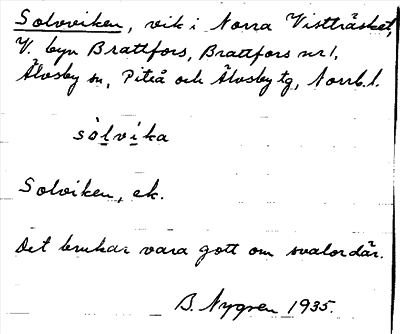 Solvviken, vik i Norra Vistträsket,
V. byn Brattfors, Brattfors nr 1,
Älvsby sn, Piteå och Älvsby tg, Norrb. l.
sòlvika
Solviken, ek.
Det brukar vara gott om svalor där.
B. Nygren 1935.